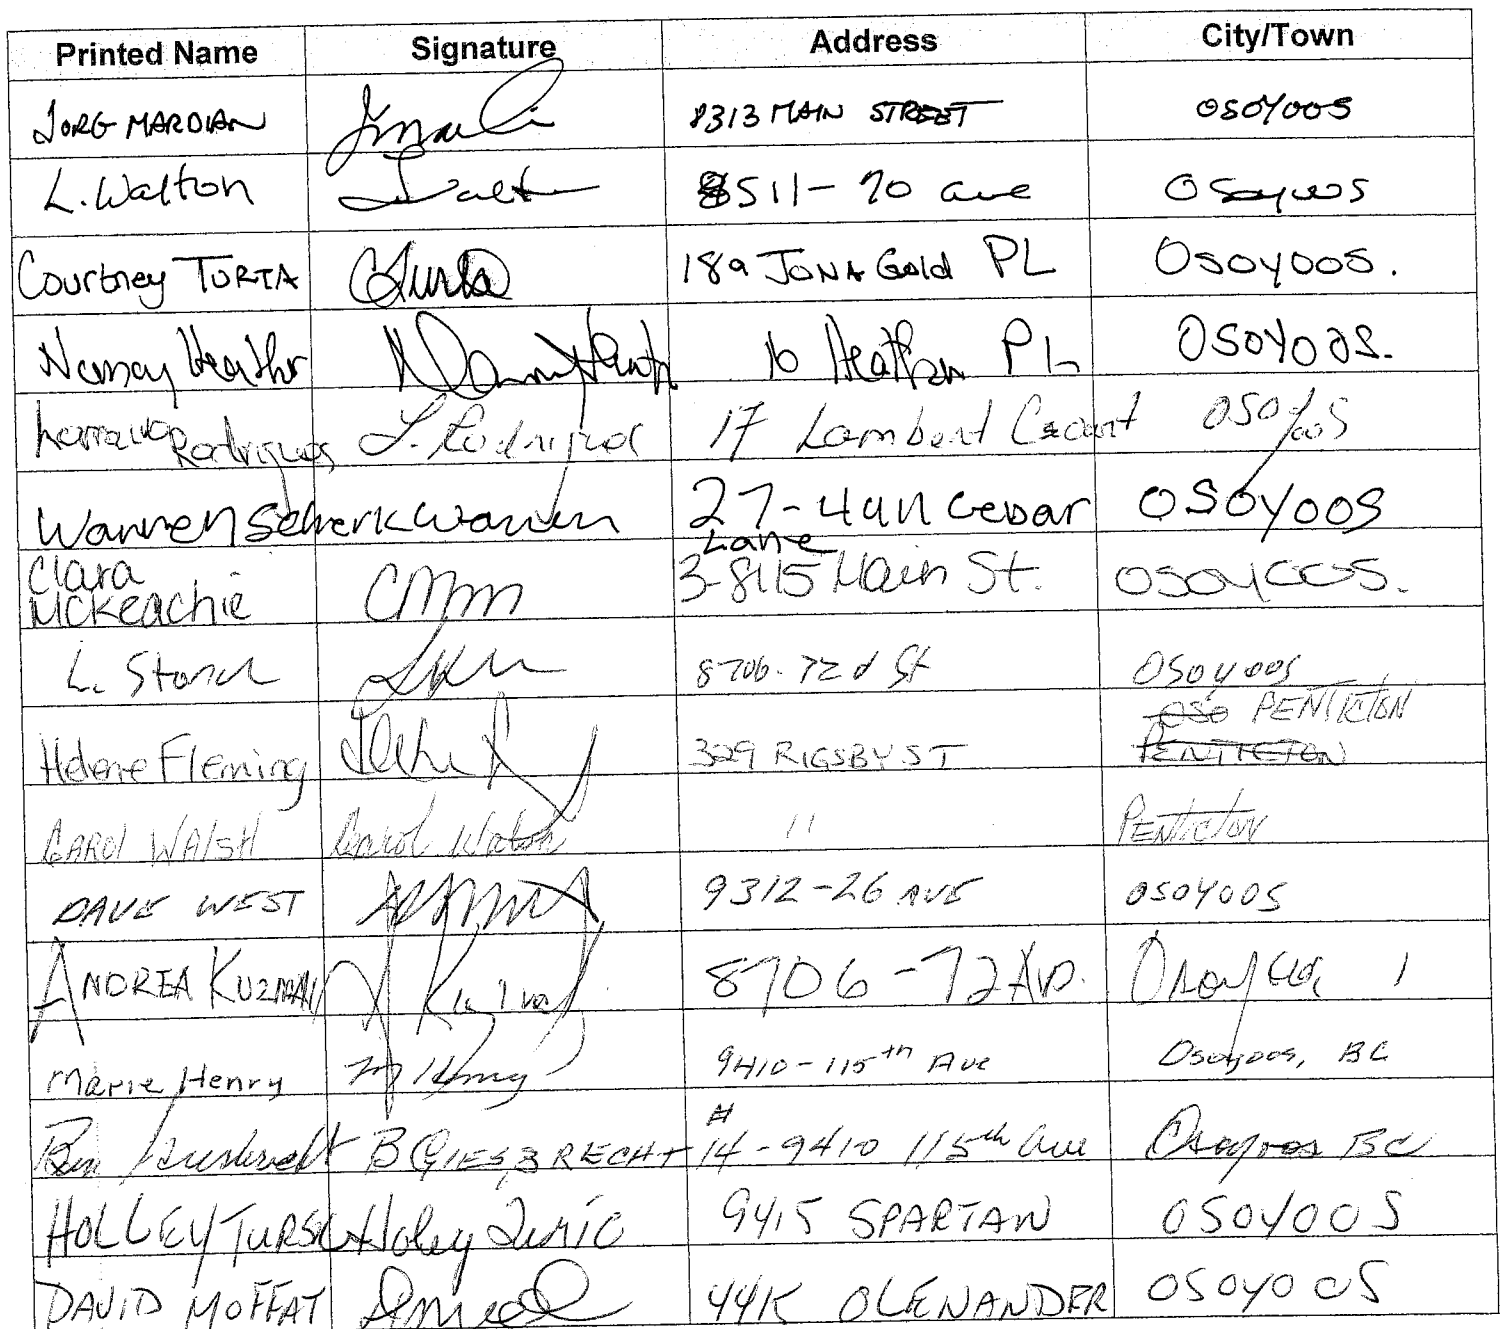 Printed Name Signature Address City/Town
JORG MARDIAN 8313 MAIN STREET OSOYOOS
L. Walton 8511-70 ave Osoyoos
Courtney TURTA CTurta 189 JONA Gold PL OSOYOOS.
Heather PL OSOYOOS.
Rodrigues L. Rodrigues 17 Lambert Court OSOYOOS
Warren Scherk Warren 27-4411 Cedar Lane OSOYOOS
Clara McKeachie 3-8115 Main St. OSOYOOS.
L. 8706-72 St OSOYOOS
Helene Fleming 329 RIGSBY ST PENTICTON
CAROL WALSH Carol 11 PENTICTON
DAVE WEST 9312-26 AVE OSOYOOS
ANDREA KUZMAN 8706-72 Av. Osoyoos
Marie Henry M Henry 9410-115th Ave Osoyoos, BC
Ben Giesbrecht B GIESBRECHT #14-9410 115th Ave Osoyoos BC
HOLLEY Holley 9415 SPARTAN OSOYOOS
DAVID MOFFAT 44K OLENANDER OSOYOOS